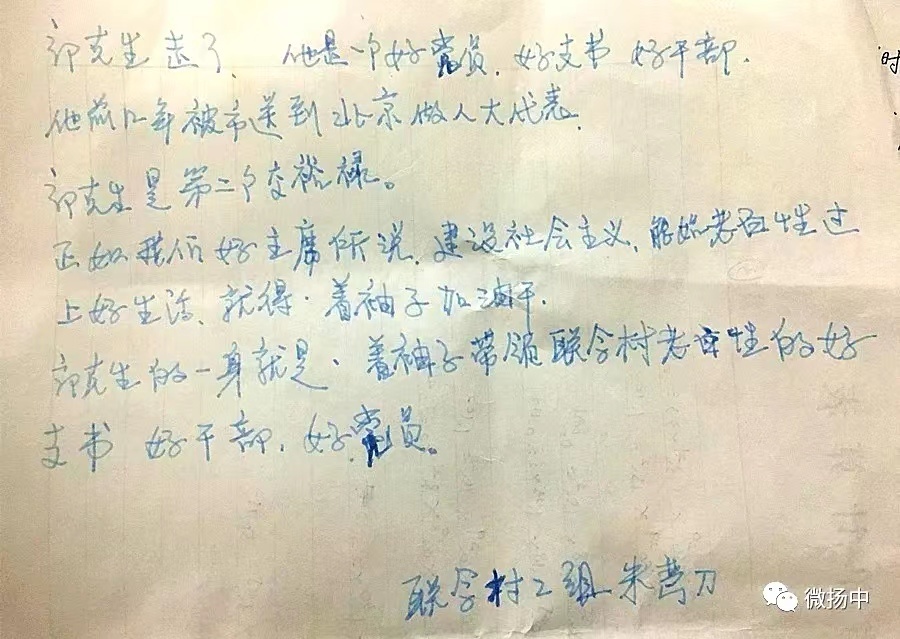 郭克生走了、他是一个好党员、好支书 好干部.
他前几年被市送到北京做人大代表.
郭克生是第二个交裕禄。
正如我们好主席所说、建设社会主义、能给老百姓过
上好生活、就得·着袖子加油干.
郭克生的一身就是·着袖子带领联合村老百姓的好
支书 好干部、好党员。
联合村2组 朱
时
微扬中